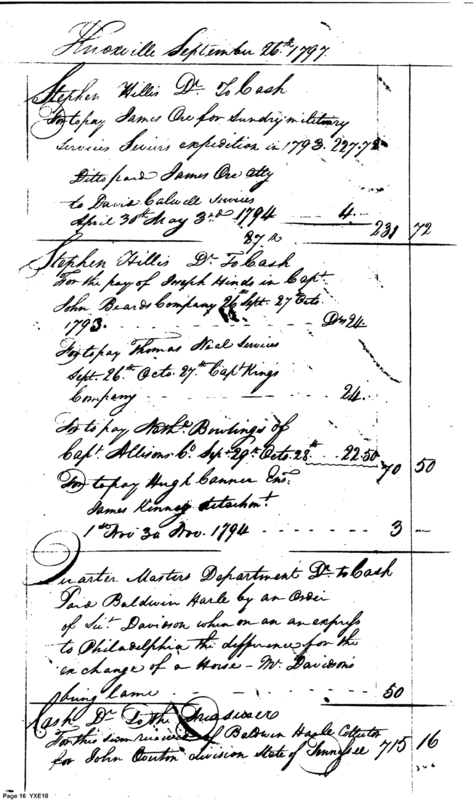 Knoxville September 26th 1797.
Stephen Hillis Dr. To Cash
For to pay James Ore for Sundry military
Services Seviers expedition in 1793. 227.72
Ditto paid James Ore Atty
to David Calwell Services
April 30th May 3rd 1794 4. 231 72
27th
Stephen Hillis Dr. To Cash
For the pay of Joseph Hinds in Capt.
John Beards Company 26th Sept. 27 Octo.
1793. Drs 24.
For to pay Thomas Neal Services
Sept. 26th Octo. 27th Capt Kings
Company 24.
For to pay Nathl. Bowlings of
Capt. Allisons Co. Sept 29th Octo. 28th 22.50 70 50
For to pay Hugh Conner Ens.
James Kinney detachmt.
1st Nov 30 Nov. 1794 3 —
Quarter Masters Department Dr. to Cash
Paid Baldwin Harle by an Order
of Lieut. Davidson when on an express
to Philadelphia the difference for the
exchange of a Horse - Mr. Davidsons
being lame 50
Cash Dr. To the Treasurer
For this sum received of Baldwin Harle Collector
for John Overton division State of Tennessee 715 16
Page 16 YXE18